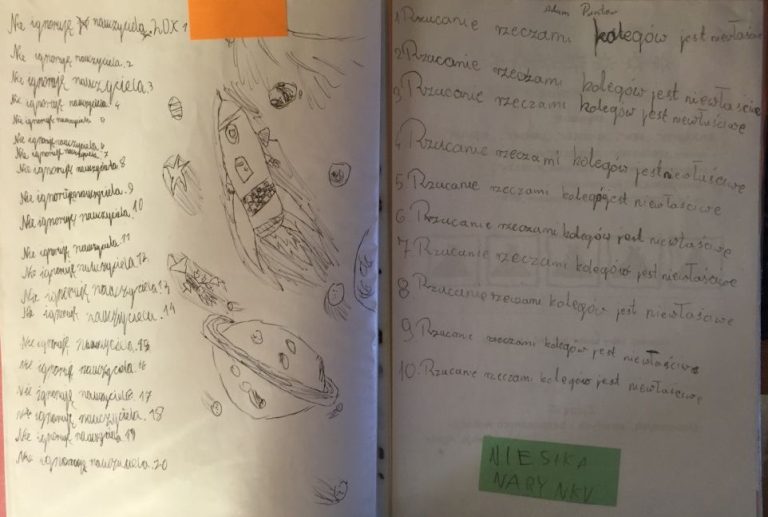 Nie ignoruję nauczyciela. 20x 1
Nie ignoruję nauczyciela. 2
Nie ignoruję nauczyciela 3
Nie ignoruję nauczyciela 4
Nie ignoruję nauczyciela
Nie ignoruję nauczyciela 6
Nie ignoruję nauczyciela 7
Nie ignoruję nauczyciela 8
Nie ignoruję nauczyciela. 9
Nie ignoruję nauczyciela. 10
Nie ignoruję nauczyciela 11
Nie ignoruję nauczyciela. 12
Nie ignoruję nauczyciela. 13
Nie ignoruję nauczyciela. 14
Nie ignoruję nauczyciela. 15
Nie ignoruję nauczyciela 16
Nie ignoruję nauczyciela. 17
Nie ignoruję nauczyciela. 18
Nie ignoruję nauczyciela 19
Nie ignoruję nauczyciela. 20
Adam
1. Rzucanie rzeczami kolegów jest niewłaściw
2. Rzucanie rzeczami kolegów jest niewłaściwe
3. Rzucanie rzeczami kolegów jest niewłaściwe
4. Rzucanie rzeczami kolegów jest niewłaściwe
5. Rzucanie rzeczami kolegów jest niewłaściwe
6. Rzucanie rzeczami kolegów jest niewłaściwe
7. Rzucanie rzeczami kolegów jest niewłaściwe
8. Rzucanie rzeczami kolegów jest niewłaściwe
9. Rzucanie rzeczami kolegów jest niewłaściwe
10. Rzucanie rzeczami kolegów jest niewłaściwe
NIESIKA
NARYNKU